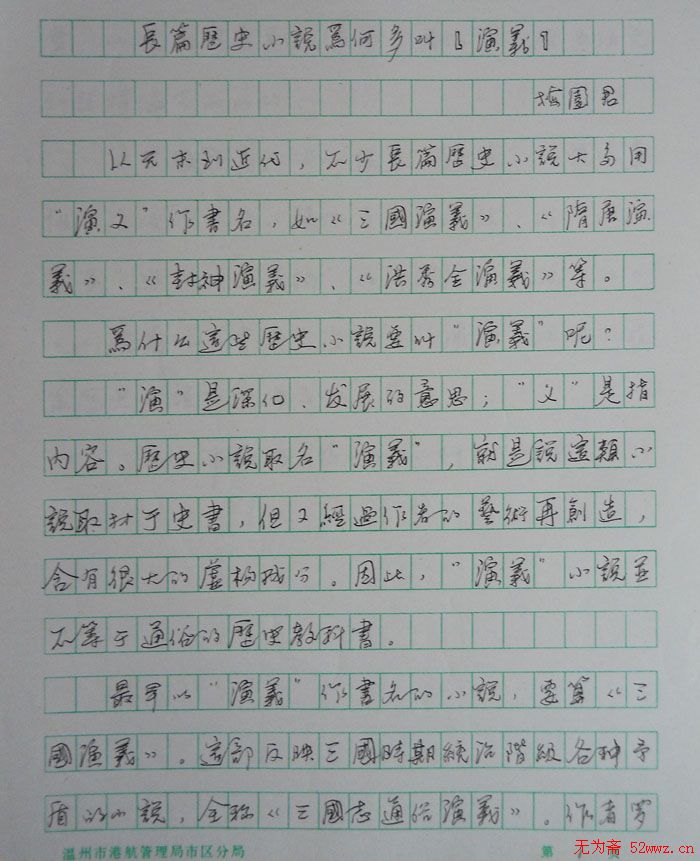 長篇歷史小說爲何多叫『演義』
梅園君
以元末到近代，不少長篇歷史小說大多用
“演义”作書名，如《三國演義》、《隋唐演
義》、《封神演義》、《洪秀全演義》等。
爲什么這些歷史小說要叫“演義”呢？
“演”是深化、发展的意思；“义”是指
内容。歷史小說取名“演義”，就是說這類小
說取材于史書，但又經過作者的藝術再創造，
含有很大的虛构成分。因此，“演義”小說並
不等于通俗的歷史教科書。
最早以“演義”作書名的小說，要算《三
國演義》。這部反映三國時期統治階級各种矛
盾的小說，全称《三國志通俗演義》。作者罗
温州市港航管理局市区分局 第
无为斋 52wwz.cn